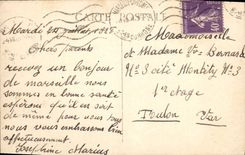 CARTE POSTALE
Mardi 24 juillet 1928
Chers parents
recevez un bonjour
de marseille nous
sommes en bonne santé
espérons qu'il en soit
de même pour vous tous
nous vous embrassons bien
affectueusement
Joséphine Marius
Mademoiselle
et Madame Vve Bernard
Cité Montéty N=3
1er étage
Toulon Var
40